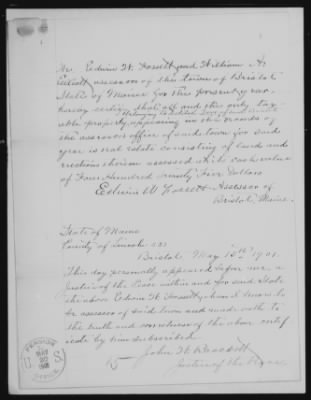 We Edwin W. Fossett, and William A.
Elliott assessors of the town of Bristol
State of Maine for the present year
hereby certify that all and the only tax-
able property, appearing on the records of
the assessors office of said town for said
year is real estate consisting of land and
erections thereon assessed at the cash value
of Four Hundred Seventy Five Dollars
Edwin W Fossett Assessor of
Bristol, Maine.
State of Maine
County of Lincoln ss.
Bristol May 15th 1901.
This day personally appeared before me, a
Justice of the Peace within and for said State
the above Edwin W. Fossett whom I know to
be assessor of said town and made oath to
the truth and correctness of the above certif
icate by him subscribed.
John W.
Justice of the Peace
PENSION
MAY 20 1901
OFFICE